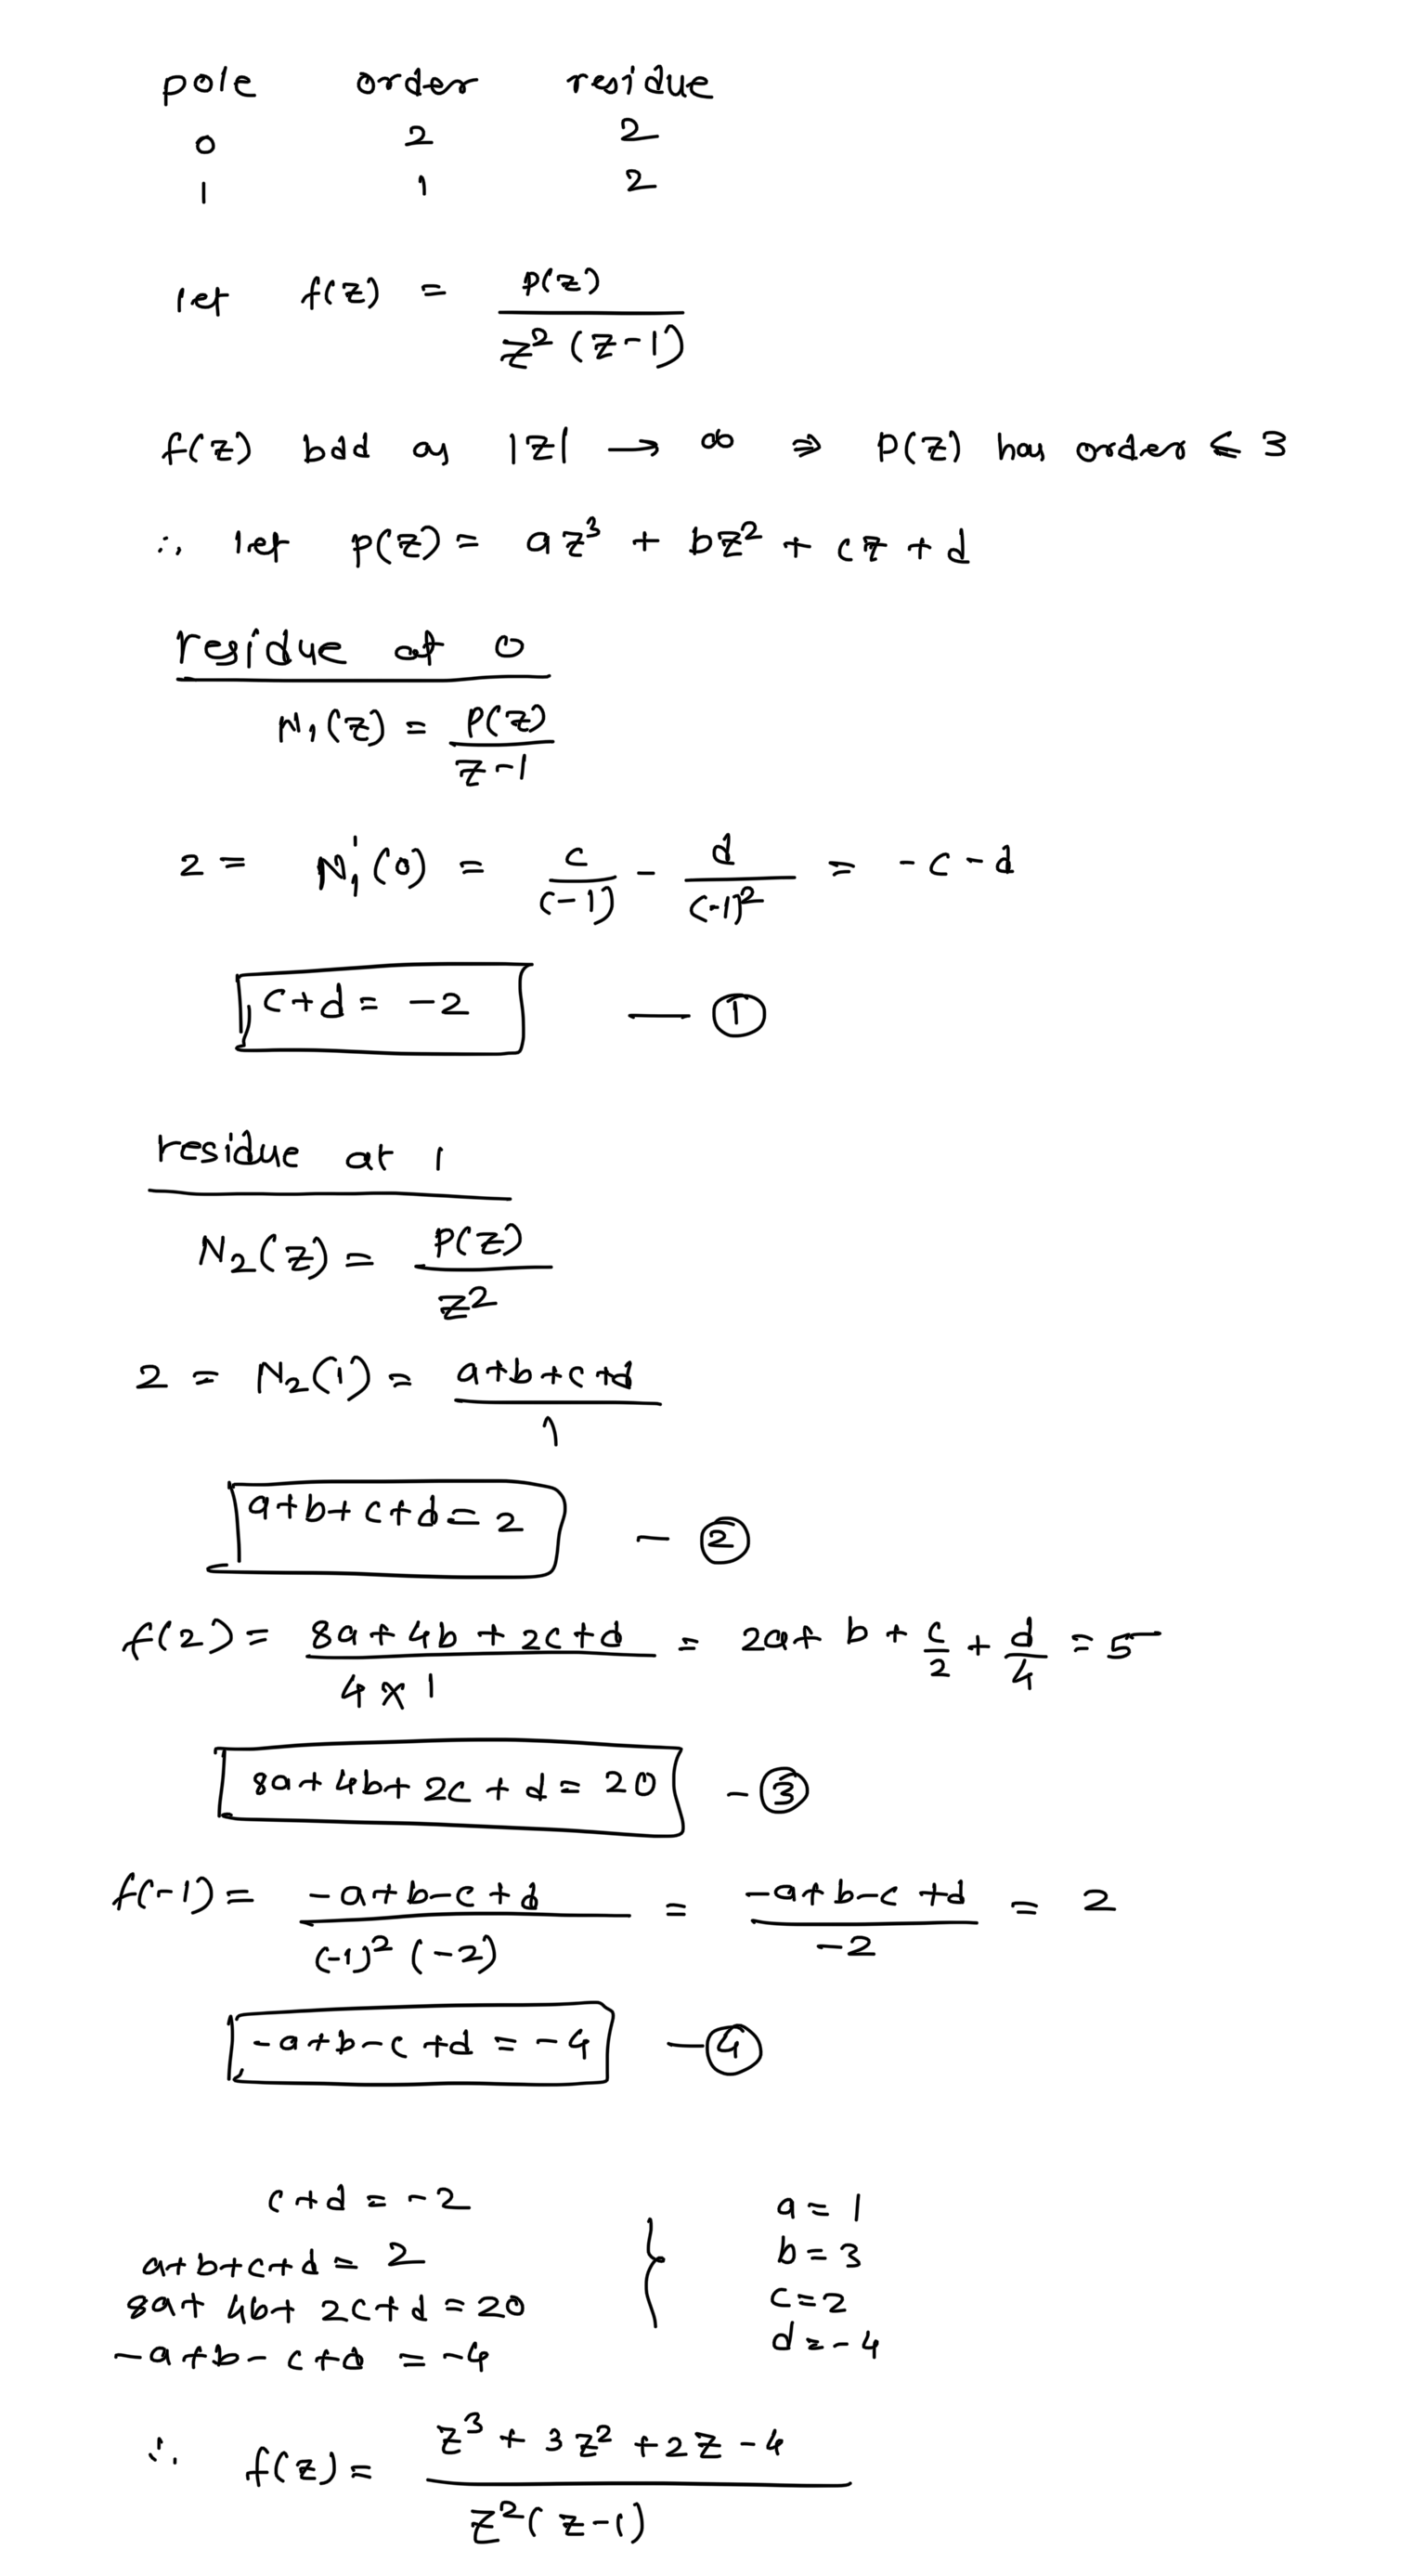 pole order residue
0 2 2
1 1 2
let f(z) = p(z) / z² (z-1)
f(z) bdd as |z| → ∞ ⇒ P(z) has order ≤ 3
∴ let p(z) = az³ + bz² + cz + d
residue at 0
N₁(z) = p(z) / z-1
2 = N₁'(0) = c / (-1) - d / (-1)² = -c-d
c+d = -2 — ①
residue at 1
N₂(z) = P(z) / z²
2 = N₂(1) = a+b+c+d / 1
a+b+c+d = 2 — ②
f(2) = 8a+4b+2c+d / 4×1 = 2a+b+c/2+d/4 = 5
8a+4b+2c+d = 20 — ③
f(-1) = -a+b-c+d / (-1)² (-2) = -a+b-c+d / -2 = 2
-a+b-c+d = -4 — ④
c+d = -2
a+b+c+d = 2
8a+4b+2c+d = 20
-a+b-c+d = -4
}
a = 1
b = 3
c = 2
d = -4
∴ f(z) = z³ + 3z² + 2z - 4 / z² (z-1)